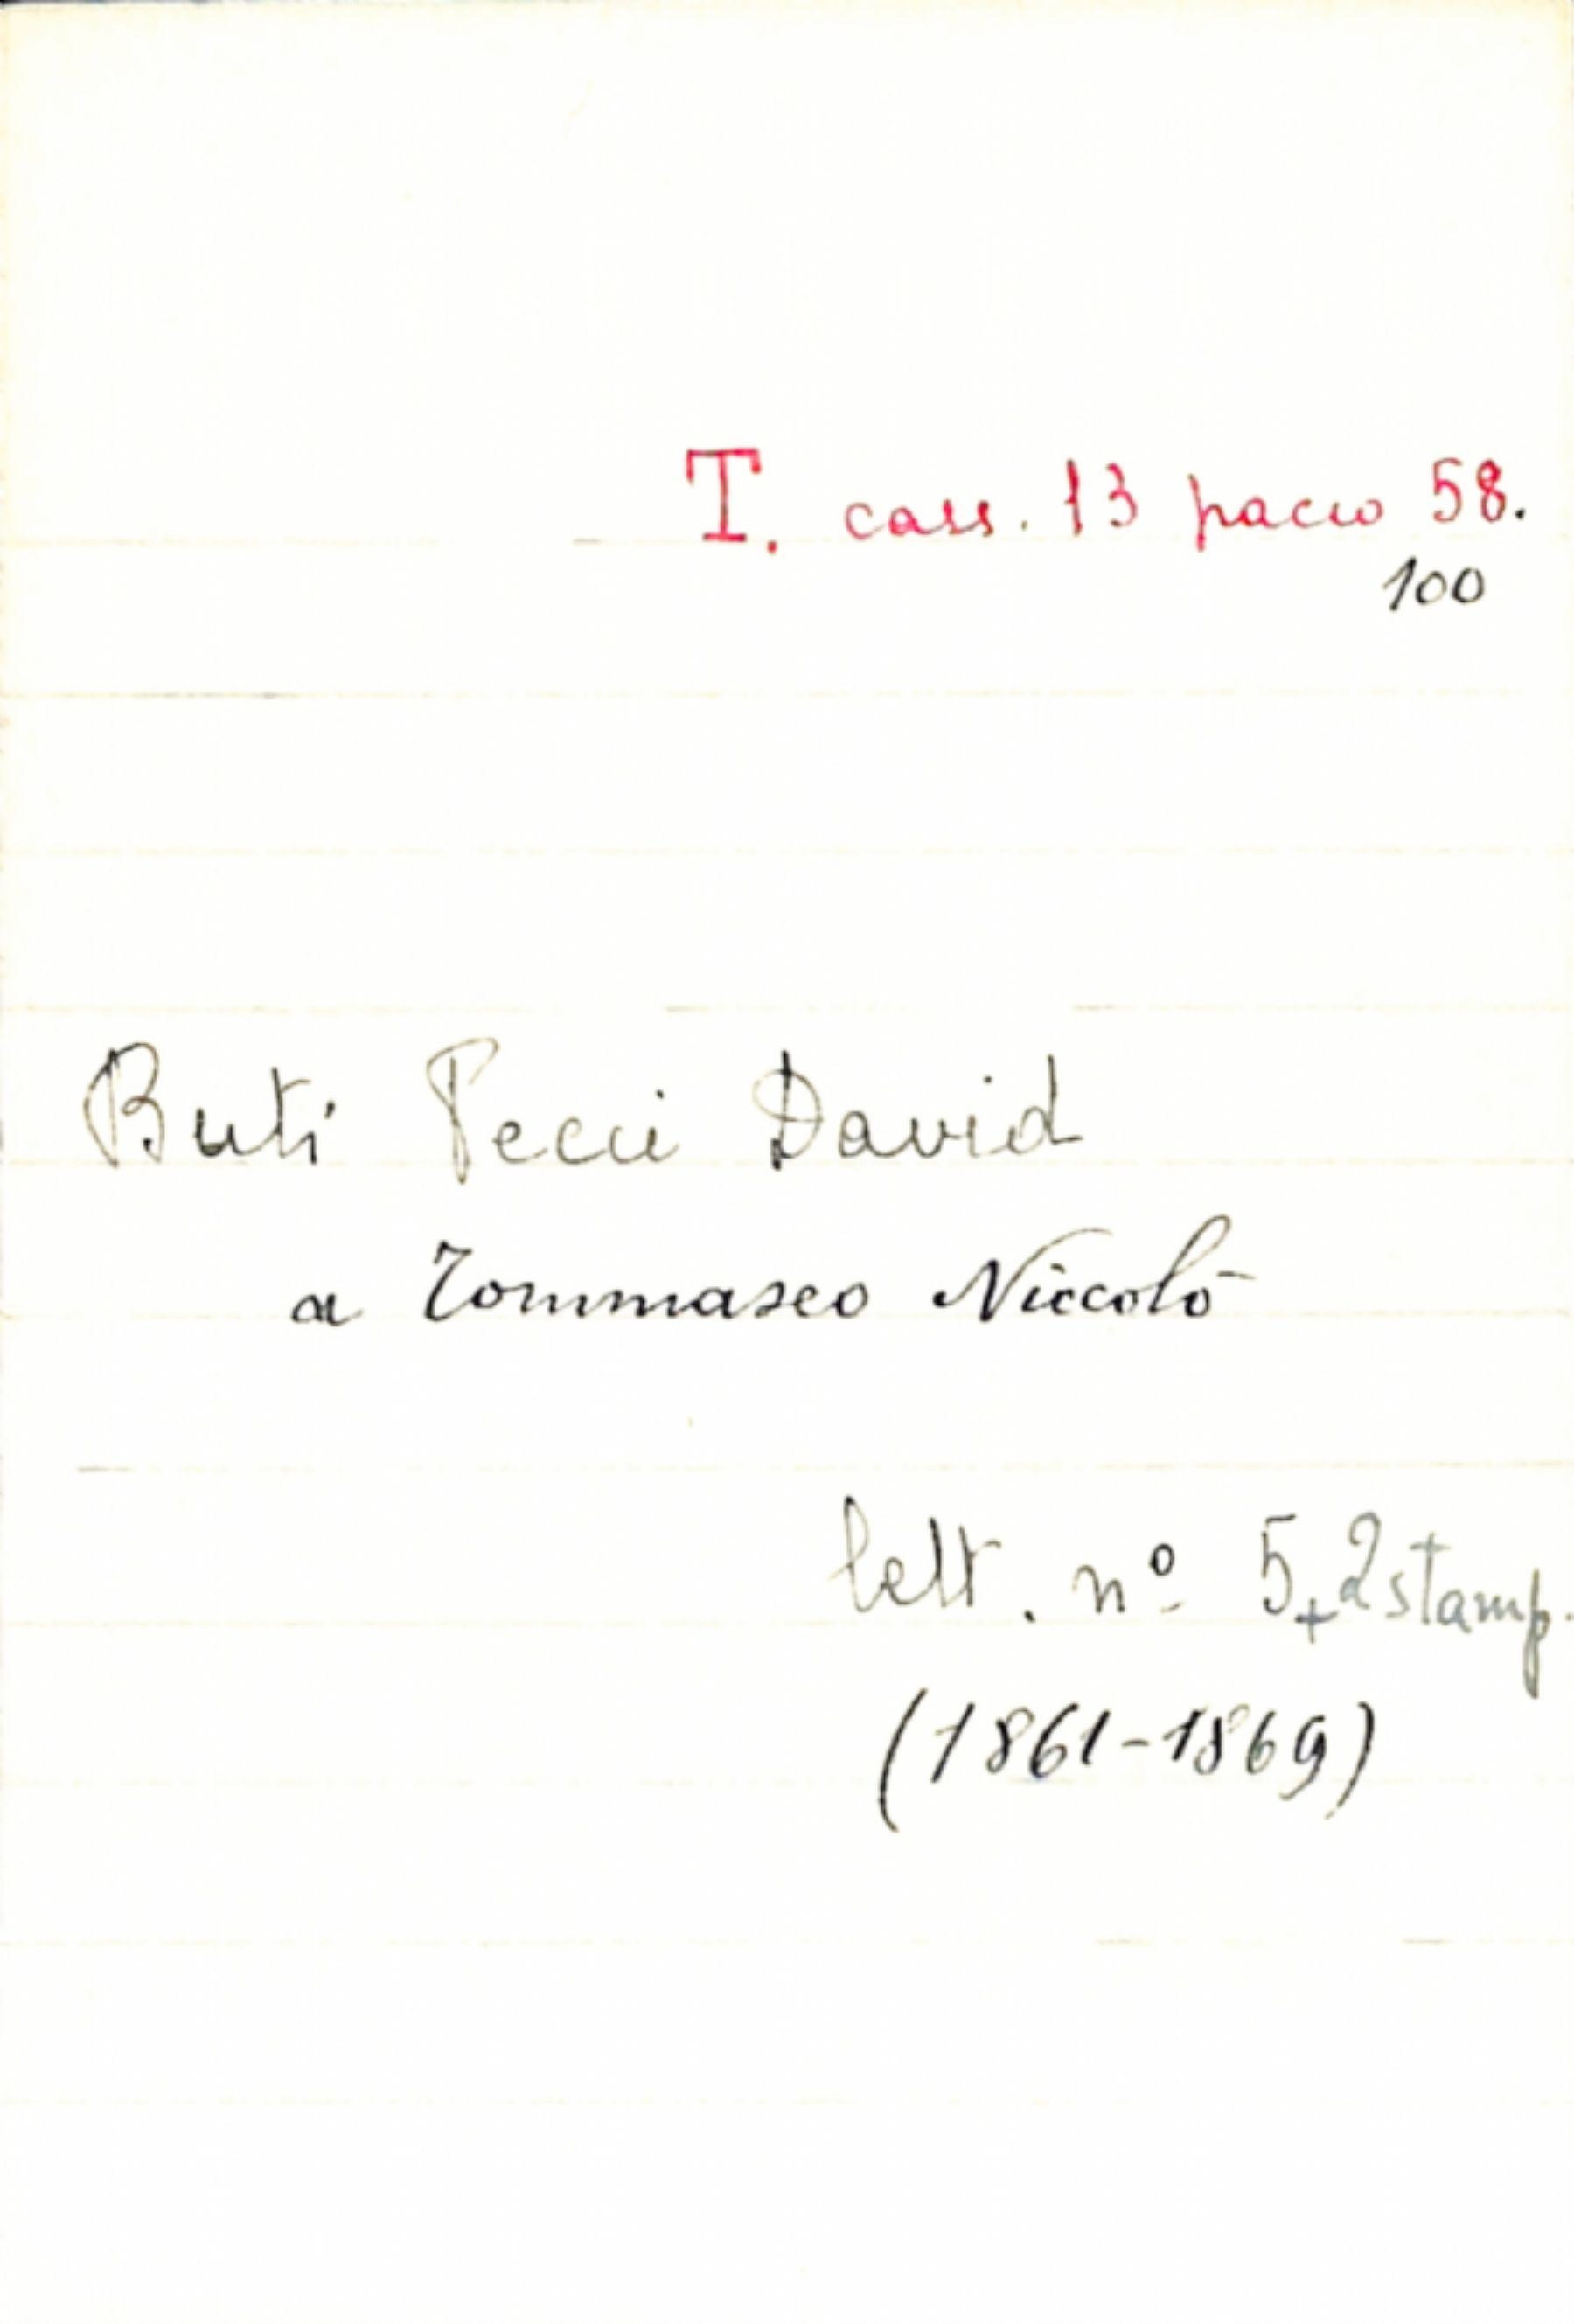 T. cass. 13 pacco 58.
100
Buti Pecci David
a Tommaseo Niccolò
lett. nº 5+2 stamp.
(1861-1869)